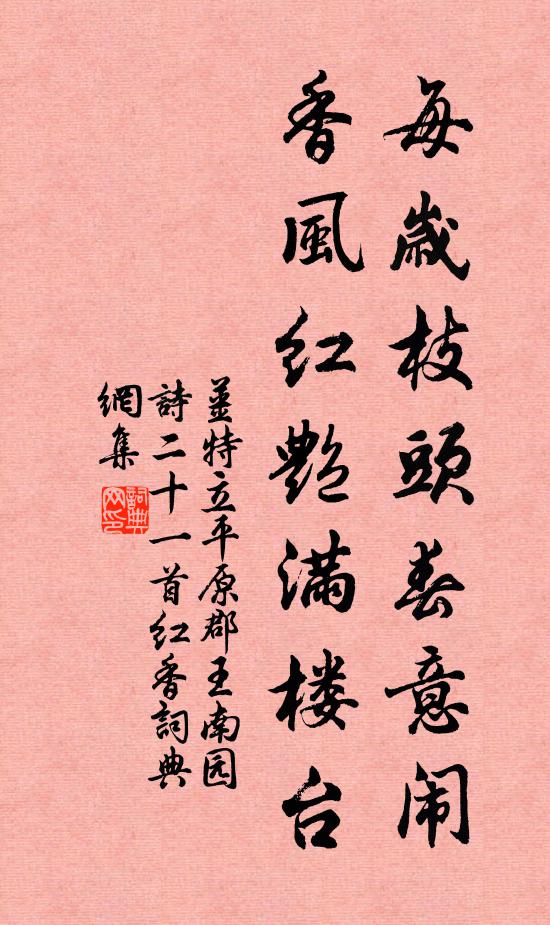 每歲枝頭春意闹
香風红艷满楼台
姜特立平原郡王南园
詩二十一首红香詞典
網集
詞典网印